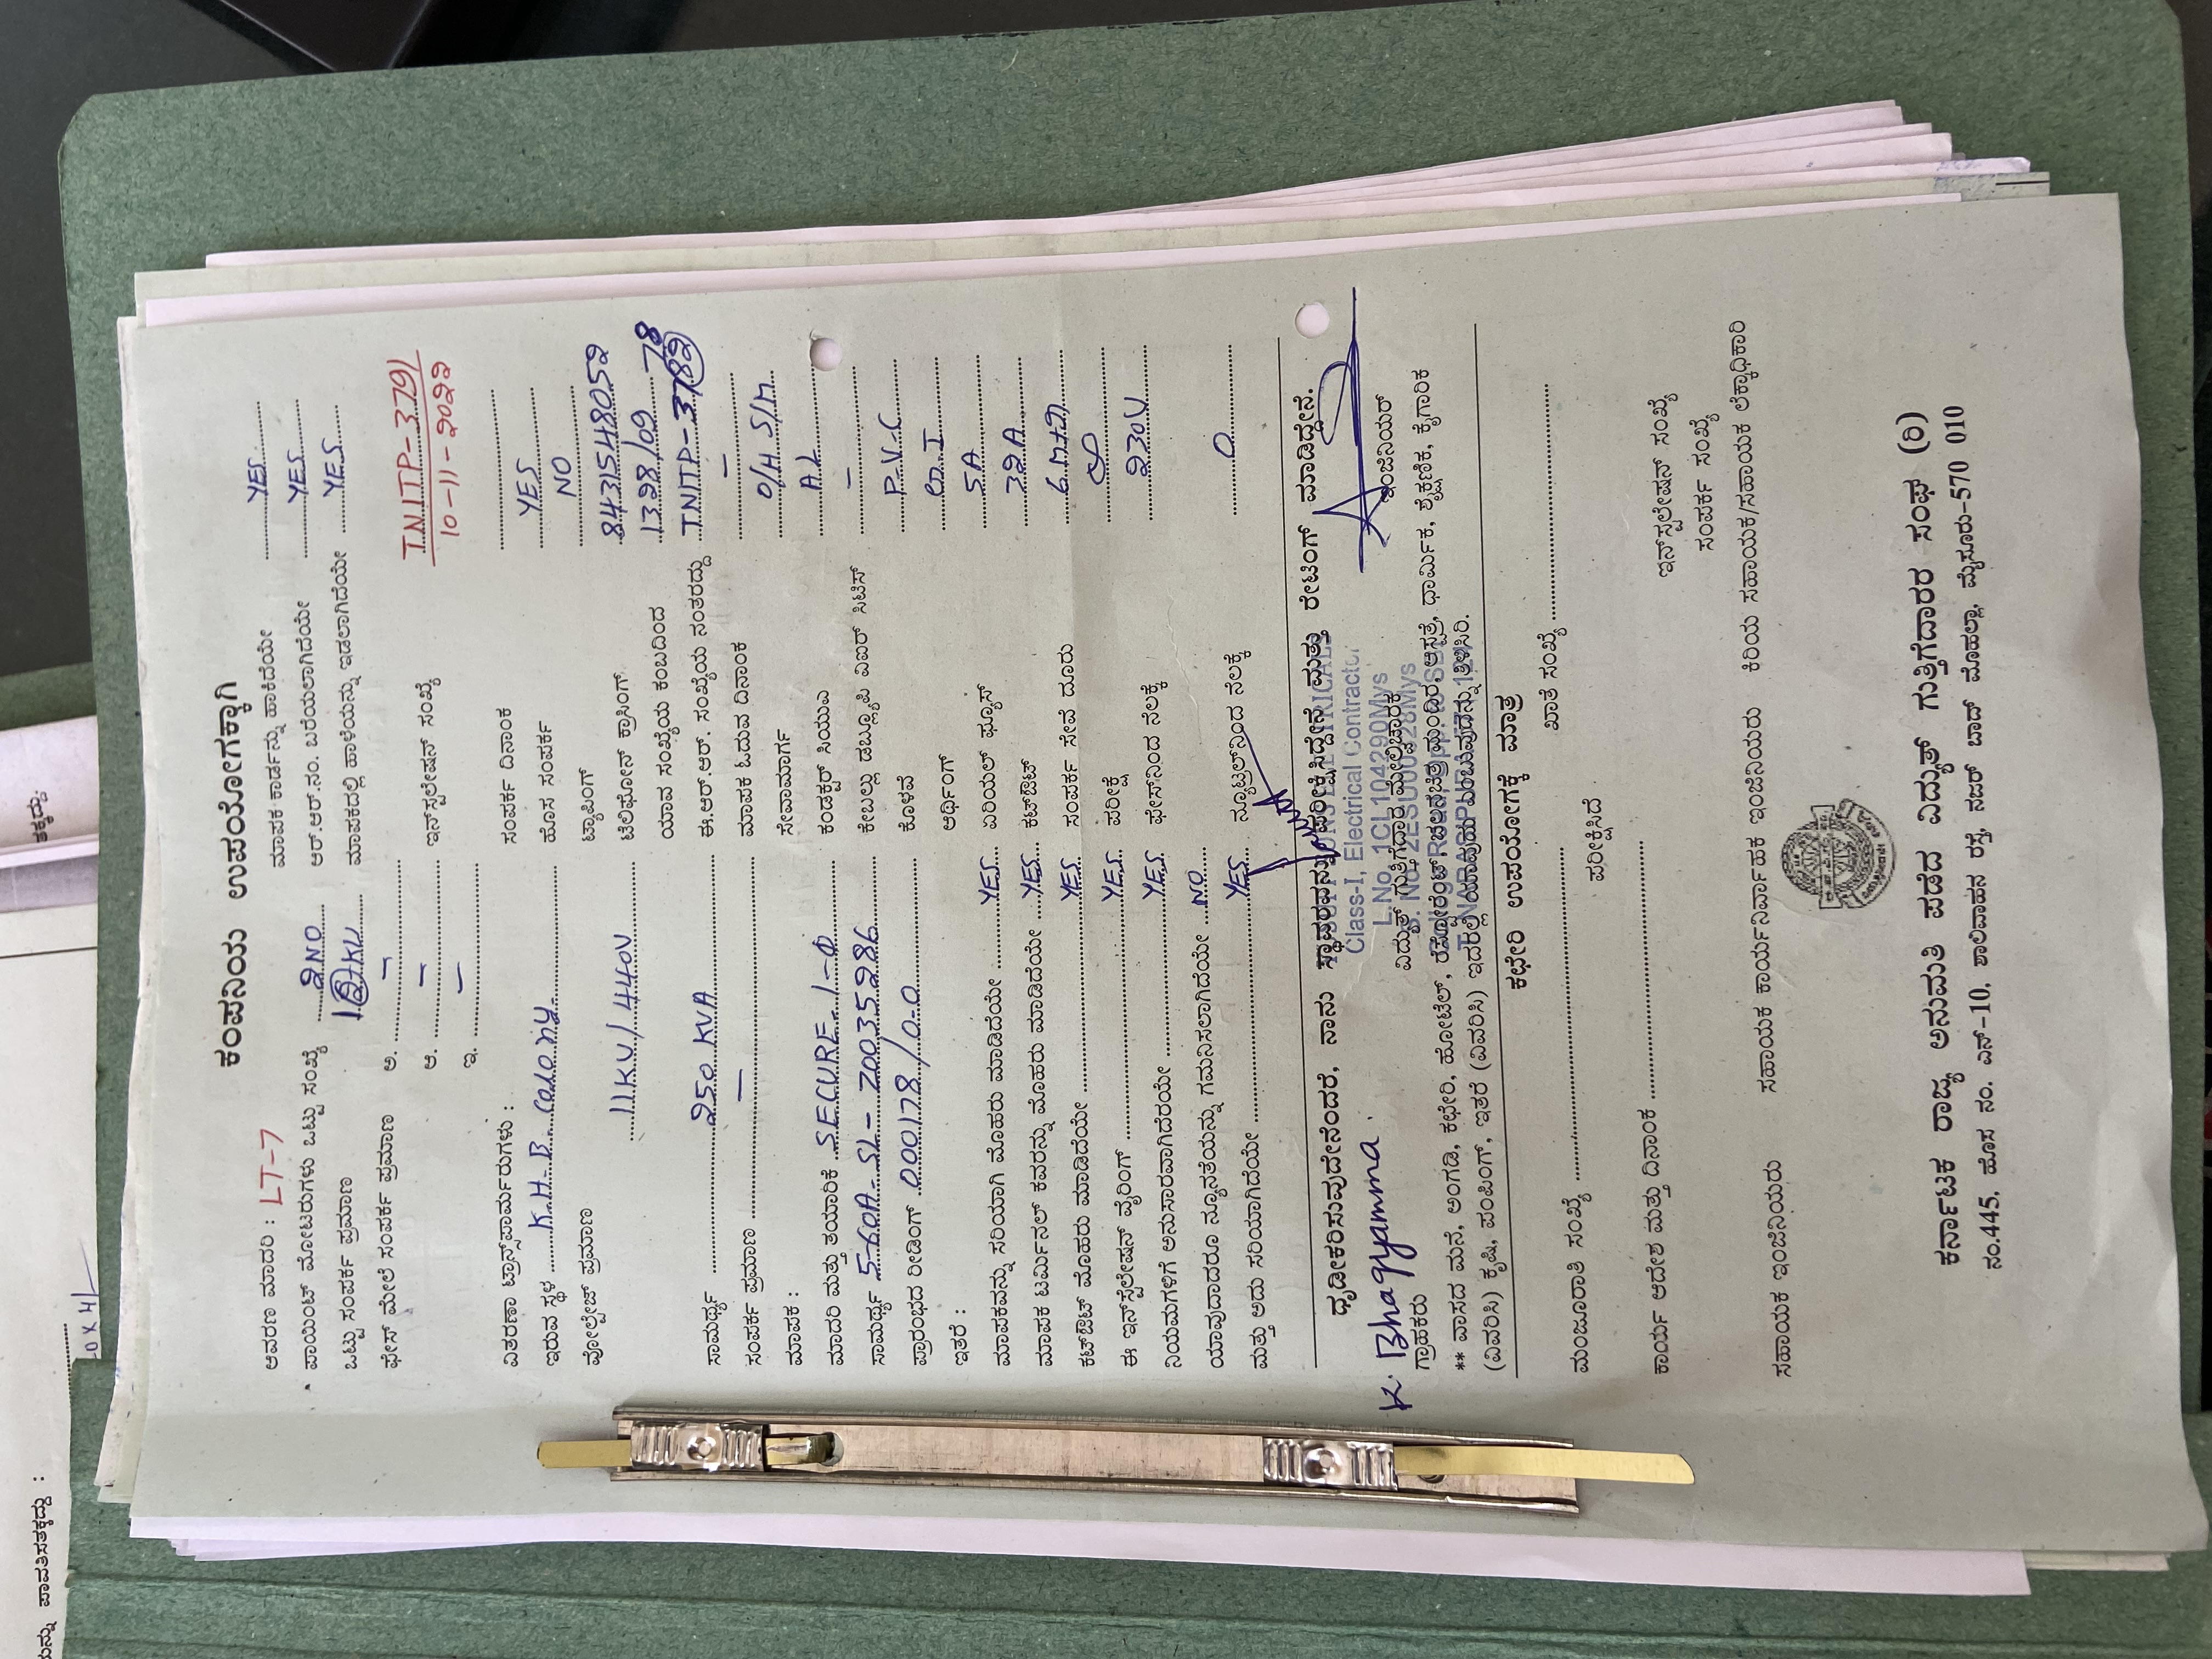 ಕಂಪನಿಯ ಉಪಯೋಗಕ್ಕಾಗಿ
ಆವರಣ ಮಾದರಿ : LT-7
ಪಾಯಿಂಟ್ ಮೋಟರುಗಳು ಒಟ್ಟು ಸಂಖ್ಯೆ 2NO
ಒಟ್ಟು ಸಂಪರ್ಕ ಪ್ರಮಾಣ
ಫೇಸ್ ಮೇಲೆ ಸಂಪರ್ಕ ಪ್ರಮಾಣ ಅ. –
ಆ. –
ಇ. –
ವಿತರಣಾ ಟ್ರಾನ್ಸ್‌ಫಾರ್ಮರುಗಳು :
ಇರುವ ಸ್ಥಳ K.H.B Colony
ವೋಲ್ಟೇಜ್ ಪ್ರಮಾಣ 11KV/440V
ಸಾಮರ್ಥ್ಯ 250 KVA
ಸಂಪರ್ಕ ಪ್ರಮಾಣ –
ಮಾಪಕ :
ಮಾದರಿ ಮತ್ತು ತಯಾರಿಕೆ SECURE 1-Φ
ಸಾಮರ್ಥ್ಯ 5-60A-SL-20035286
ಪ್ರಾರಂಭದ ರೀಡಿಂಗ್ 000178/0.0
ಇತರೆ :
ಮಾಪಕವನ್ನು ಸರಿಯಾಗಿ ಮೊಹರು ಮಾಡಿದೆಯೇ YES
ಮಾಪಕ ಟರ್ಮಿನಲ್ ಕವರನ್ನು ಮೊಹರು ಮಾಡಿದೆಯೇ YES
ಕಟ್‌ಔಟ್ ಮೊಹರು ಮಾಡಿದೆಯೇ YES
ಈ ಇನ್‌ಸ್ಟಲೇಷನ್ ವೈರಿಂಗ್ YES
ನಿಯಮಗಳಿಗೆ ಅನುಸಾರವಾಗಿದೆರಯೇ YES
ಯಾವುದಾದರೂ ನ್ಯೂನತೆಯನ್ನು ಗಮನಿಸಲಾಗಿದೆಯೇ NO
ಮತ್ತು ಅದು ಸರಿಯಾಗಿದೆಯೇ YES
ಮಾಪಕ ಕಾರ್ಡನ್ನು ಹಾಕಿದೆಯೇ YES
ಆರ್.ಆರ್.ನಂ. ಬರೆಯಲಾಗಿದೆಯೇ YES
ಮಾಪಕದಲ್ಲಿ ಹಾಳೆಯನ್ನು ಇಡಲಾಗಿದೆಯೇ YES
ಇನ್‌ಸ್ಟಲೇಷನ್ ಸಂಖ್ಯೆ TNITP-3791
10-11-2022
ಸಂಪರ್ಕ ದಿನಾಂಕ
ಹೊಸ ಸಂಪರ್ಕ YES
ಟ್ಯಾಪಿಂಗ್ NO
ಟೆಲಿಫೋನ್ ಕ್ರಾಸಿಂಗ್ 8431548052
ಯಾವ ಸಂಖ್ಯೆಯ ಕಂಬದಿಂದ 1328/09
ಈ.ಆರ್.ಆರ್. ಸಂಖ್ಯೆಯ ನಂತರದ್ದು TNITP-3782
ಮಾಪಕ ಓದುವ ದಿನಾಂಕ –
ಸೇವಾಮಾರ್ಗ O/H S/M
ಕಂಡಕ್ಟರ್ ಸಿಯುಎ AL
ಕೇಬಲ್ಲು ಡಬ್ಲ್ಯೂಪಿ ಎಐಆರ್ ಸಿಟಿಸ್ –
ಕೊಳವೆ P.V.C
ಅರ್ಥಿಂಗ್ G.I
ಏರಿಯಲ್ ಫ್ಯೂಸ್ 5A
ಕಟ್‌ಔಟ್ 32A
ಸಂಪರ್ಕ ಸೇವೆ ದೂರು
ಪರೀಕ್ಷೆ
ಫೇಸ್‌ನಿಂದ ನೆಲಕ್ಕೆ 230V
ನ್ಯೂಟ್ರಲ್‌ನಿಂದ ನೆಲಕ್ಕೆ 0
ಧೃಡೀಕರಿಸುವುದೇನೆಂದರೆ, ನಾನು ಸ್ಥಾವರವನ್ನು ಪರೀಕ್ಷಿಸಿದ್ದೇನೆ ಮತ್ತು ರೇಟಿಂಗ್ ಮಾಡಿದ್ದೇನೆ.
Class-I, Electrical Contractor
L.No. 1CL104290Mys
K. Bhagyamma.
ಗ್ರಾಹಕರು
ವಿದ್ಯುತ್ ಗುತ್ತಿಗೆದಾರ ಮೇಲ್ವಿಚಾರಕ
ಇಂಜಿನಿಯರ್
** ವಾಸದ ಮನೆ, ಅಂಗಡಿ, ಕಛೇರಿ, ಹೋಟೆಲ್, ರೆಸ್ಟೋರೆಂಟ್ ಚಲನಚಿತ್ರ ಮಂದಿರ, ಆಸ್ಪತ್ರೆ, ಧಾರ್ಮಿಕ, ಶೈಕ್ಷಣಿಕ, ಕೈಗಾರಿಕ
(ವಿವರಿಸಿ) ಕೃಷಿ, ಪಂಪಿಂಗ್, ಇತರೆ (ವಿವರಿಸಿ) ಇದರಲ್ಲಿ ಯಾವುದು ಎಂಬುವುದನ್ನು ತಿಳಿಸಿರಿ.
ಕಛೇರಿ ಉಪಯೋಗಕ್ಕೆ ಮಾತ್ರ
ಮಂಜೂರಾತಿ ಸಂಖ್ಯೆ
ಖಾತೆ ಸಂಖ್ಯೆ
ಪರೀಕ್ಷಿಸಿದೆ
ಕಾರ್ಯ ಆದೇಶ ಮತ್ತು ದಿನಾಂಕ
ಇನ್‌ಸ್ಟಲೇಷನ್ ಸಂಖ್ಯೆ
ಸಂಪರ್ಕ ಸಂಖ್ಯೆ
ಸಹಾಯಕ ಇಂಜಿನಿಯರು ಸಹಾಯಕ ಕಾರ್ಯನಿರ್ವಾಹಕ ಇಂಜಿನಿಯರು ಕಿರಿಯ ಸಹಾಯಕ/ಸಹಾಯಕ ಲೆಕ್ಕಾಧಿಕಾರಿ
ಕರ್ನಾಟಕ ರಾಜ್ಯ ಅನುಮತಿ ಪಡೆದ ವಿದ್ಯುತ್ ಗುತ್ತಿಗೆದಾರರ ಸಂಘ (ರಿ)
ನಂ.445, ಹೊಸ ನಂ. ಎನ್-10, ಶಾಲಿವಾಹನ ರಸ್ತೆ, ನಜರ್ ಬಾದ್ ಮೊಹಲ್ಲಾ, ಮೈಸೂರು-570 010